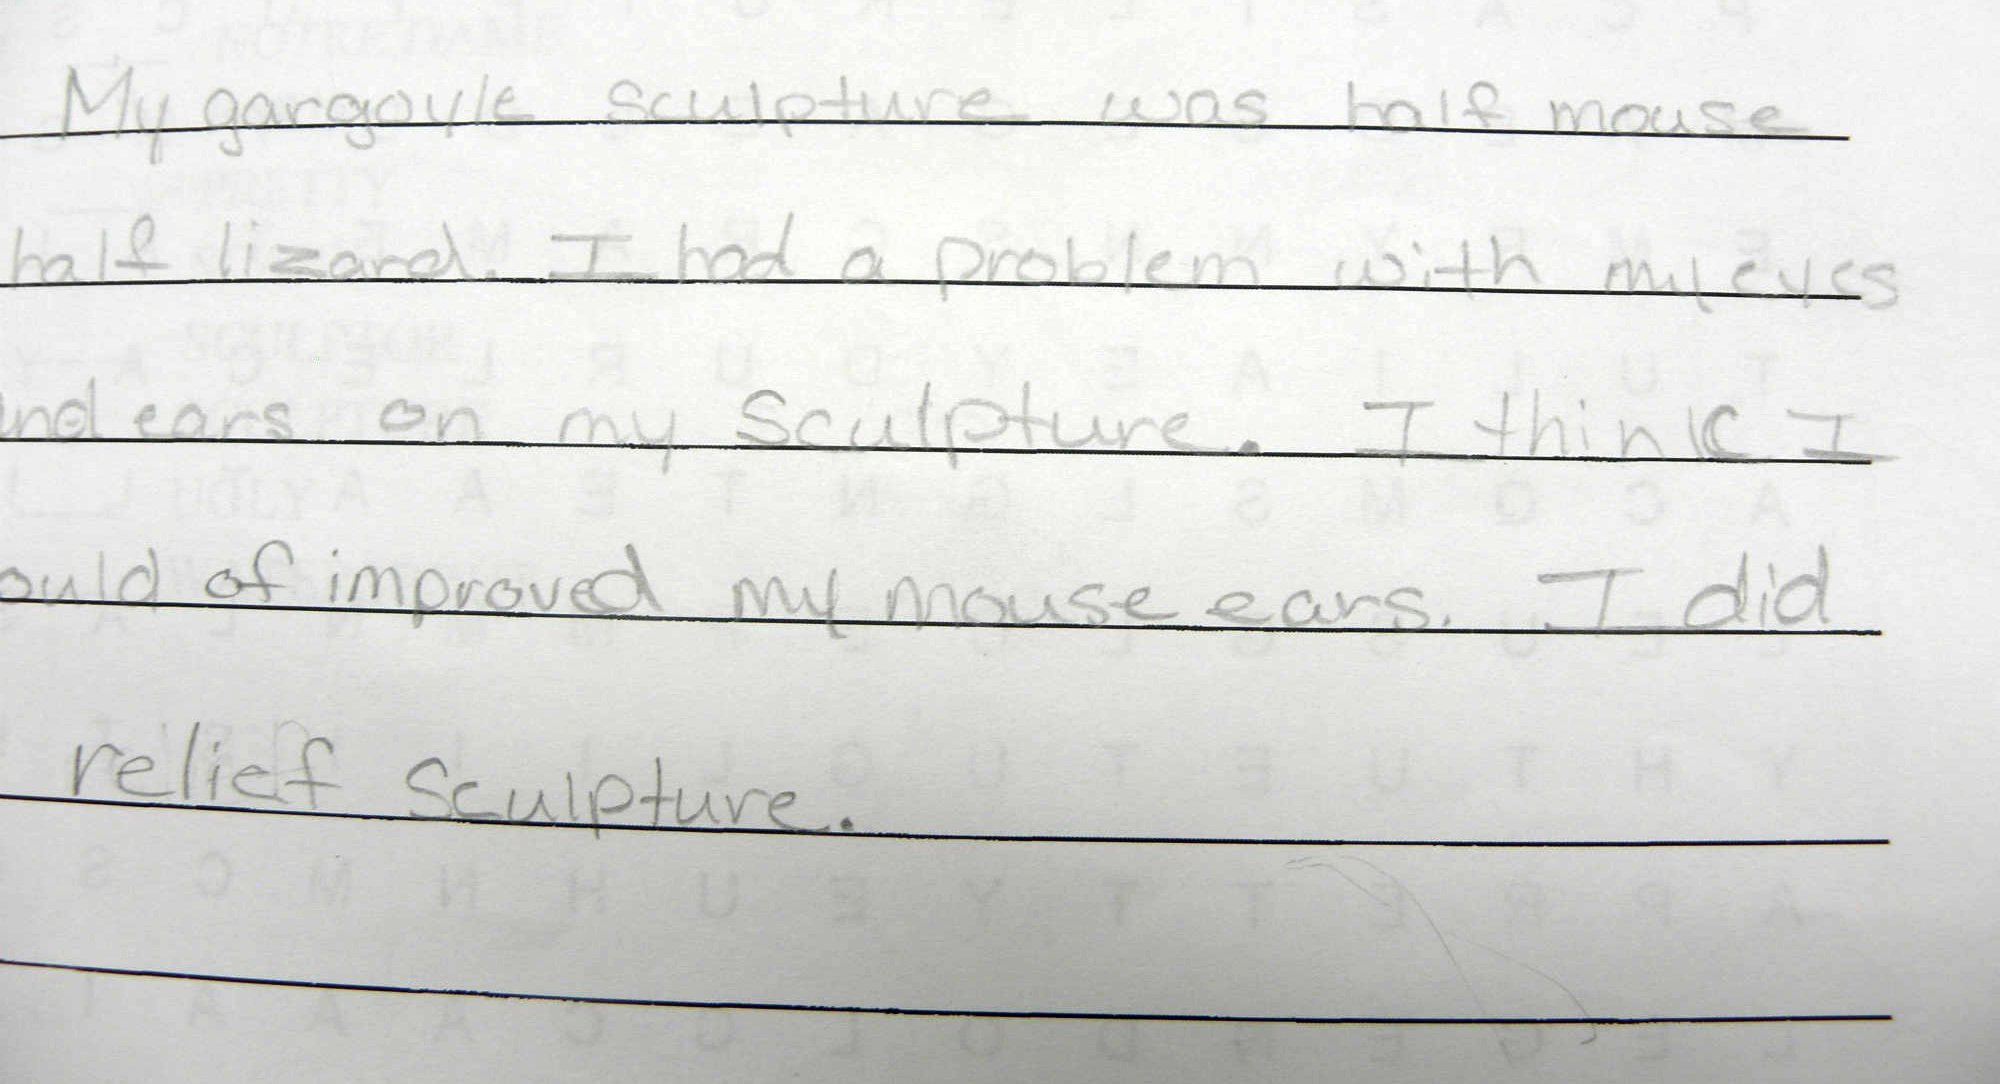 My gargoyle sculpture was half mouse
half lizard. I had a problem with my eyes
and ears on my sculpture. I think I
ould of improved my mouse ears. I did
relief sculpture.